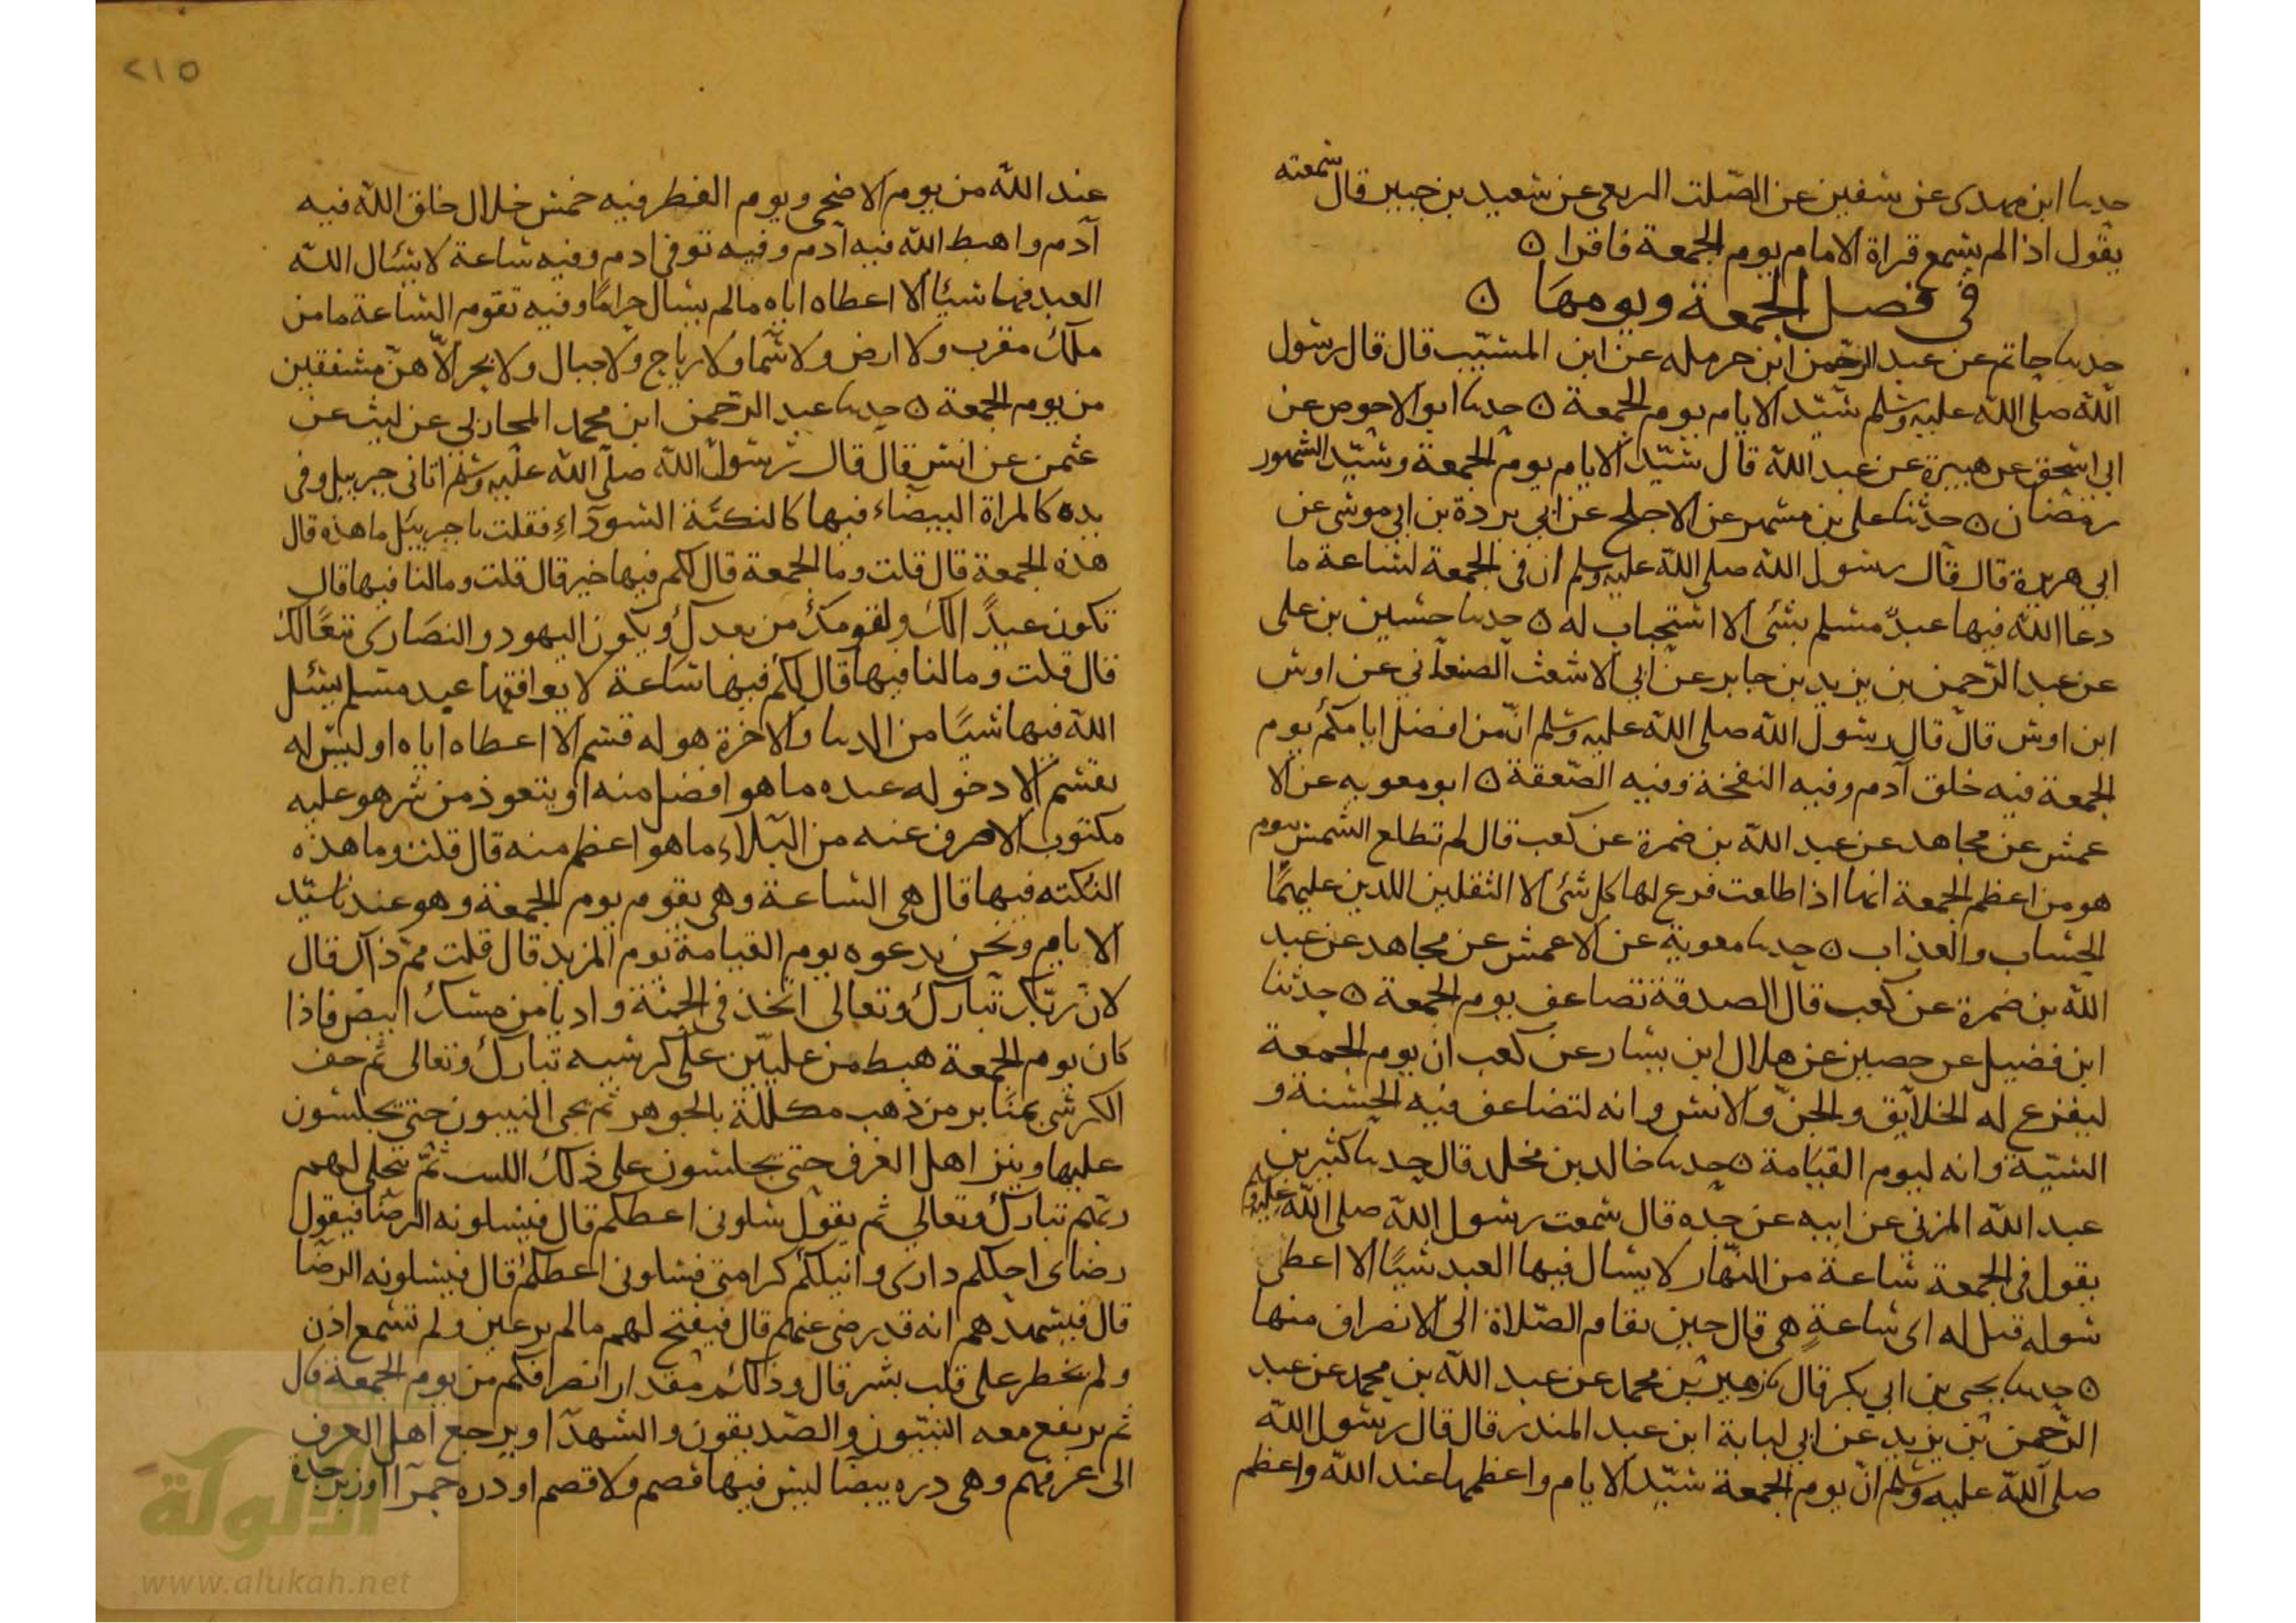 حدثنا ابن مهدى عن سفين عن الصلت الربعى عن سعيد بن جبير قال سمعته
يقول اذا لم يسمع قراة الامام يوم الجمعة فاقرا ه
في فضل الجمعة ويومها ه
حدثنا حاتم عن عبد الرحمن ابن حرمله عن ابن المسيب قال قال رسول
الله صلى الله عليه وسلم سيد الايام يوم الجمعة ه حدثنا ابو الاحوص عن
ابى اسحق عن هبيرة عن عبد الله قال سيد الايام يوم الجمعة وسيد الشهور
رمضان ه حدثنا على بن مسهر عن الاجلح عن ابى بردة بن ابى موسى عن
ابى هريرة قال قال رسول الله صلى الله عليه وسلم ان فى الجمعة لساعة ما
دعا الله فيها عبد مسلم بشئ الا استجاب له ه حدثنا حسين بن على
عن عبد الرحمن بن يزيد بن جابر عن ابى الاشعث الصنعانى عن اوس
ابن اوس قال قال رسول الله صلى الله عليه وسلم ان من افضل ايامكم يوم
الجمعة فيه خلق آدم وفيه النفخة وفيه الصعقة ه ابو معويه عن الا
عمش عن مجاهد عن عبد الله بن ضمرة عن كعب قال لم تطلع الشمس بيوم
هو من اعظم الجمعة انها اذا طلعت فزع لها كل شئ الا الثقلين اللذين عليهما
الحساب والعذاب ه حدثنا معوية عن الاعمش عن مجاهد عن عبد
الله بن ضمرة عن كعب قال الصدقة تضاعف يوم الجمعة ه حدثنا
ابن فضيل عن حصين عن هلال ابن يسار عن كعب ان يوم الجمعة
ليفزع له الخلايق والجن والانس وانه لتضاعف فيه الحسنة و
السيية وانه ليوم القيامة ه حدثنا خالد بن مخلد قال حدثنا كثير بن
عبد الله المزنى عن ابيه عن جده قال سمعت رسول الله صلى الله عليه وسلم
يقول فى الجمعة ساعة من النهار لا يسال فيها العبد شيئا الا اعطى
سوله قيل له اى ساعة هى قال حين تقام الصلاة الى الانصراف منها
ه حدثنا يحيى بن ابى بكر قال نا زهير بن محمد عن عبد الله بن محمد عن عبد
الرحمن بن يزيد عن ابى لبابة ابن عبد المنذر قال قال رسول الله
صلى الله عليه وسلم ان يوم الجمعة سيد الايام واعظمها عند الله واعظم
٢١٥
عند الله من يوم الاضحى ويوم الفطر فيه خمس خلال خلق الله فيه
آدم واهبط الله فيه آدم وفيه توفى ادم وفيه ساعة لا يسال الله
العبد فيها شيئا الا اعطاه اياه مالم يسال حراما وفيه تقوم الساعة ما من
ملك مقرب ولا ارض ولا سما ولا رياح ولا جبال ولا بحر الا هن مشفقين
من يوم الجمعة ه حدثنا عبد الرحمن ابن محمد المحاربى عن ليث عن
عثمن عن انس قال قال رسول الله صلى الله عليه وسلم اتانى جبريل وفى
يده كالمراة البيضاء فيها كالنكتة السوداء فقلت يا جبرييل ما هذه قال
هذه الجمعة قال قلت وما الجمعة قال لكم فيها خير قال قلت وما لنا فيها قال
تكون عيدا لك ولقومك من بعدك ويكون اليهود والنصارى تبعا لك
قال قلت وما لنا فيها قال لكم فيها ساعة لا يوافقها عبد مسلم يسئل
الله فيها شيئا من الدنيا والاخرة هو له قسم الا اعطاه اياه او ليس له
بقسم الا دخر له عنده ما هو افضل منه او يتعوذ من شر هو عليه
مكتوب الا صرف عنه من البلاء ما هو اعظم منه قال قلت وما هذه
النكته فيها قال هى الساعة وهى تقوم يوم الجمعة وهو عندنا سيد
الايام ونحن ندعوه يوم القيامة يوم المزيد قال قلت مم ذاك قال
لان ربك تبارك وتعالى اتخذ فى الجنة واديا من مسك ابيض فاذا
كان يوم الجمعة هبط من عليين على كرسيه تبارك وتعالى ثم حف
الكرسى بمنابر من ذهب مكللة بالجوهر ثم يجى النبيون حتى يجلسون
عليها وينزل اهل الغرف حتى يجلسون على ذلك الكثيب ثم يتجلى لهم
ربهم تبارك وتعالى ثم يقول سلونى اعطكم قال فيسلونه الرضا فيقول
رضاى احلكم دارى وانيلكم كرامتى فسلونى اعطكم قال فيسلونه الرضا
قال فيشهدهم انه قد رضى عنهم قال فيفتح لهم مالم تر عين ولم تسمع اذن
ولم يخطر على قلب بشر قال وذلكم مقدار انصرافكم من يوم الجمعة قال
ثم يرتفع معه النبيون والصديقون والشهدا ويرجع اهل الغرف
الى غرفهم وهى دره بيضا ليس فيها قصم ولا فصم او دره حمرآ او زبرجدة
الألوكة
www.alukah.net